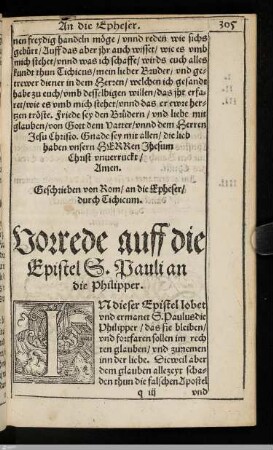 An die Epheser. 305
nen freydig handeln möge / vnnd reden wie sichs
gebürt / Auff das aber jhr auch wisset / wie es vmb
mich stehet / vnnd was ich schaffe / wirds euch alles
kundt thun Tichicus / mein lieber Bruder / vnd ge-
trewer diener in dem Herren / welchen ich gesandt
habe zu euch / vmb desselbigen willen / das jhr erfa-
ret / wie es vmb mich stehet / vnnd das er ewre her-
tzen tröste. Friede sey den Brüdern / vnd liebe mit
glauben / von Gott dem Vatter / vnnd dem Herren
Jesu Christo. Gnade sey mit allen / die lieb
haben vnsern HERRen Jhesum
Christ vnuerruckt /
Amen.
Geschrieben von Rom / an die Epheser /
durch Tichicum.
Vorrede auff die
Epistel S. Pauli an
die Philipper.
IN dieser Epistel lobet
vnd ermanet S. Paulus die
Philipper / das sie bleiben /
vnd fortfaren sollen im rech
ten glauben / vnd zunemen
inn der liebe. Dieweil aber
dem glauben allezeyt scha-
den thun die falschen Apostel
q iij vnd